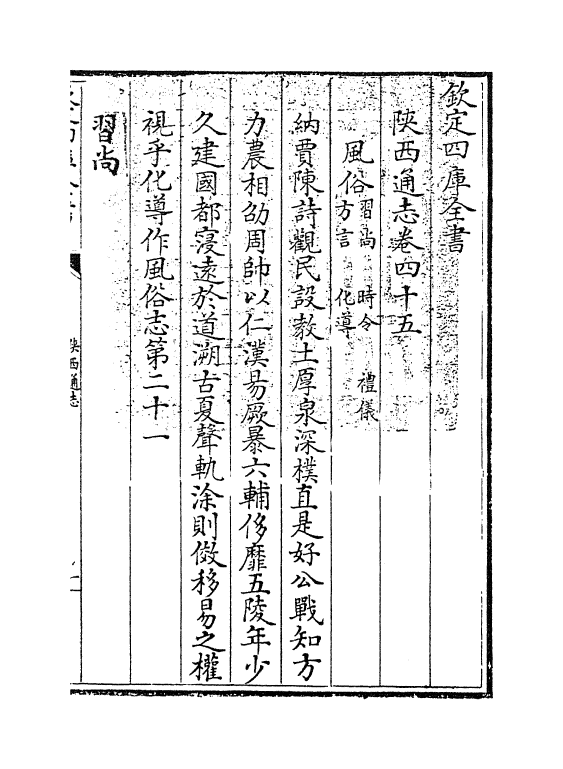 欽定四庫全書
陝西通志卷四十五
風俗 習尚 時令 禮儀
方言 化導
納賈陳詩觀民設教土厚泉深樸直是好公戰知方
力農相劭周帥以仁漢易厥暴六輔侈靡五陵年少
久建國都寖遠於道溯古夏聲軌涂則倣移易之權
視乎化導作風俗志第二十一
習尚
陝西通志